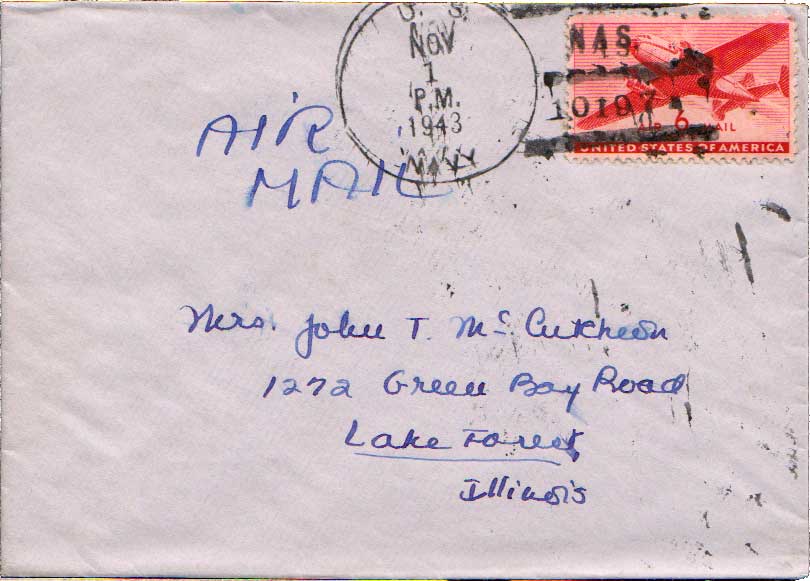 U. S.
NOV
1
P.M.
1943
NAVY
NAS
10197
6
AIR MAIL
UNITED STATES OF AMERICA
AIR
MAIL
Mrs. John T. McCutcheon
1272 Green Bay Road
Lake Forest
Illinois